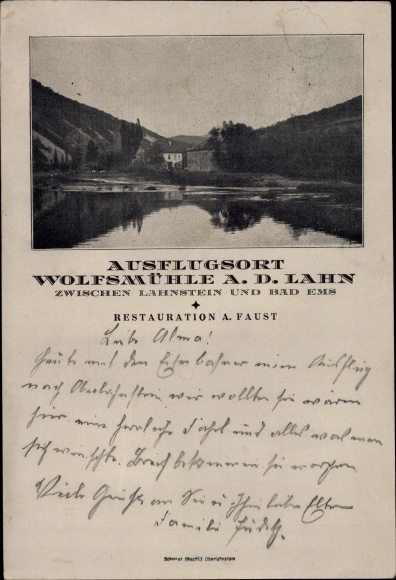 AUSFLUGSORT
WOLFSMÜHLE A. D. LAHN
ZWISCHEN LAHNSTEIN UND BAD EMS
RESTAURATION A. FAUST
Liebe Alma!
Heute mit den Eisenbahner einen Ausflug
nach Oberlahnstein, wir wollten Sie wären
hier eine herrliche Fahrt und alles was man
sich wünscht. Brief bekommen Sie morgen.
Viele Grüße an Sie u. Ihre liebe Eltern
Familie
Schickel (Nachf.) Oberlahnstein